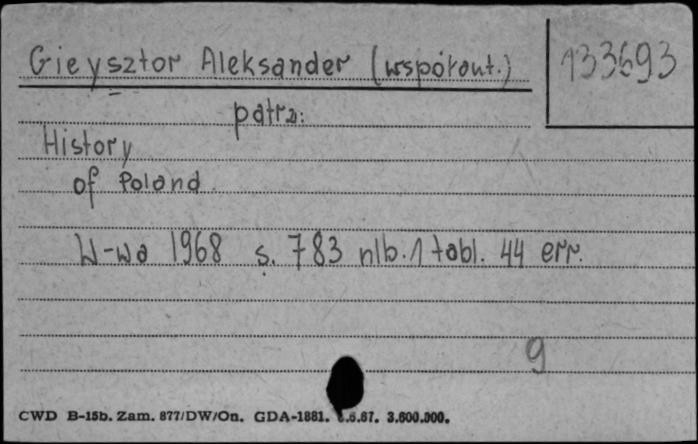 Gieysztor Aleksander (współaut.)
133693
patrz:
History
of Poland
W-wa 1968 s. 783 nlb. 1 tabl. 44 err.
g
CWD B-15b. Zam. 877/DW/On. GDA-1881. 6.67. 3.600.000.